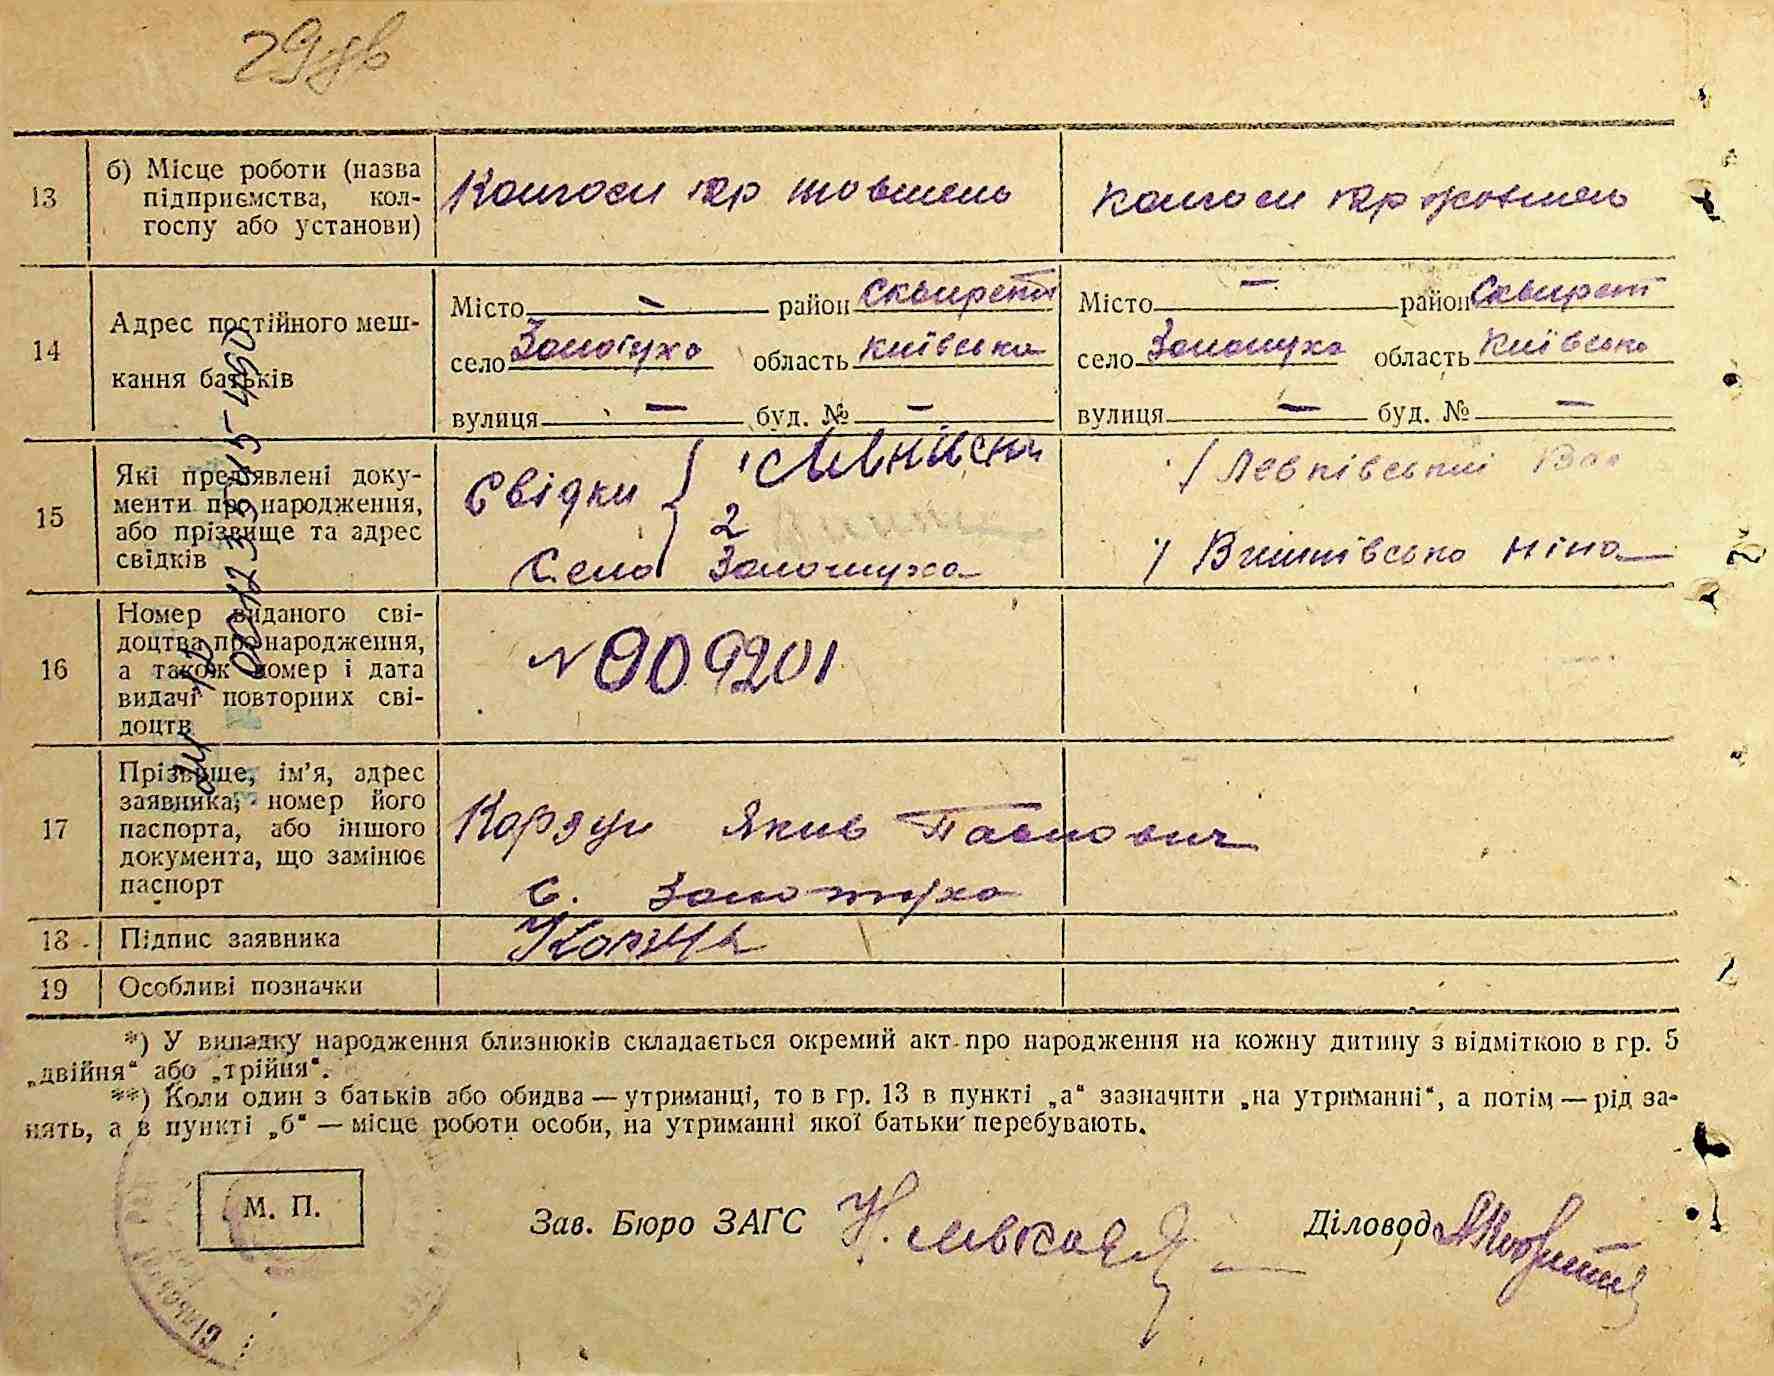 29зв
13
б) Місце роботи (назва
підприємства, кол-
госпу або установи)
Колгосп 12 р жовтень
Колгосп 12 р жовтень
14
Адрес постійного меш-
кання батьків
Місто — район Сквирськ
село Золотуха область Київська
вулиця — буд. № —
Місто — район Сквирськ
село Золотуха область Київська
вулиця — буд. № —
15
Які пред'явлені доку-
менти про народження,
або прізвище та адрес
свідків
Свідки
2
Село Золотуха
Левківський
Вишнівська Ніна
16
Номер виданого сві-
доцтва про народження,
а також номер і дата
видачі повторних сві-
доцтв
N 909201
17
Прізвище, ім'я, адрес
заявника, номер його
паспорта, або іншого
документа, що замінює
паспорт
Корзун Яків Павлович
с. Золотуха
18
Підпис заявника
19
Особливі позначки
*) У випадку народження близнюків складається окремий акт про народження на кожну дитину з відміткою в гр. 5
„двійня“ або „трійня“.
**) Коли один з батьків або обидва — утриманці, то в гр. 13 в пункті „а“ зазначити „на утриманні“, а потім — рід за-
нять, а в пункті „б“ — місце роботи особи, на утриманні якої батьки перебувають.
М. П.
Зав. Бюро ЗАГС
Діловод